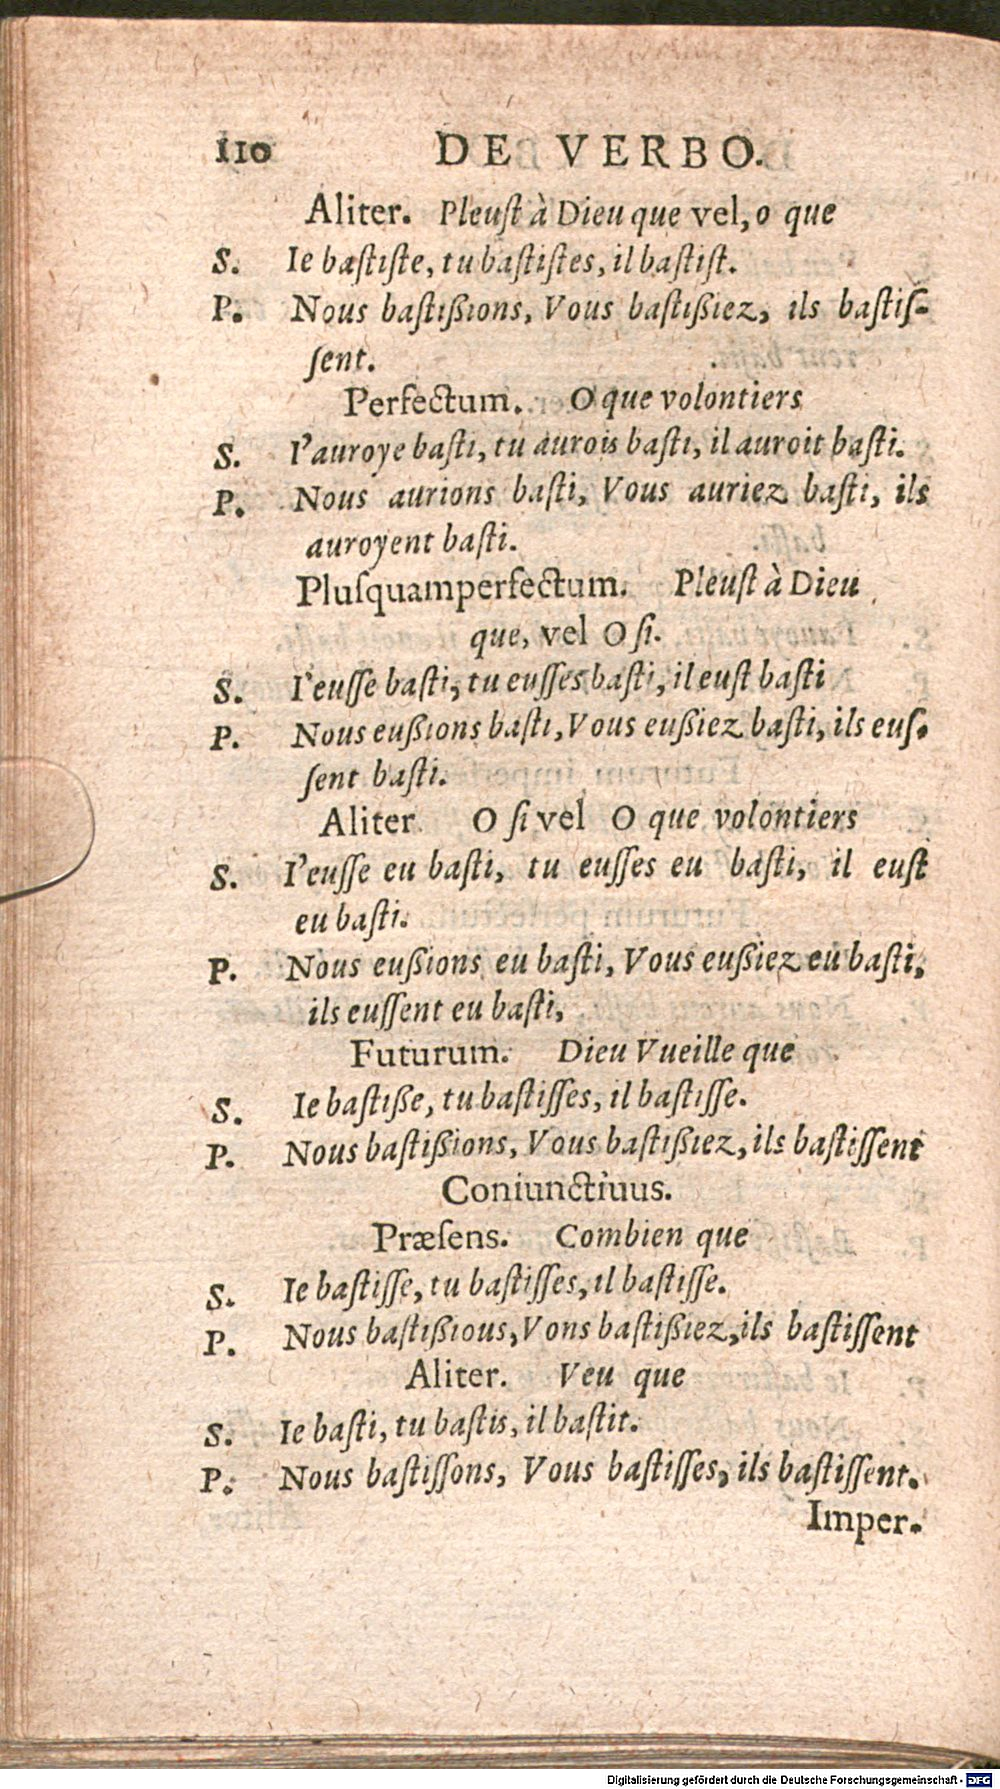 110 DE VERBO.
Aliter. Pleuſt à Dieu que vel, o que
S. Ie baſtiſte, tu baſtiſtes, il baſtiſt.
P. Nous baſtißions, Vous baſtißiez, ils baſtiſ-
ſent.
Perfectum. O que volontiers
S. I'auroye baſti, tu aurois baſti, il auroit baſti.
P. Nous aurions baſti, Vous auriez baſti, ils
auroyent baſti.
Pluſquamperfectum. Pleuſt à Dieu
que, vel O ſi.
S. I'euſſe baſti, tu euſſes baſti, il euſt baſti
P. Nous eußions baſti, Vous eußiez baſti, ils euſ-
ſent baſti.
Aliter. O ſi vel O que volontiers
S. I'euſſe eu baſti, tu euſſes eu baſti, il euſt
eu baſti.
P. Nous eußions eu baſti, Vous eußiez eu baſti,
ils euſſent eu baſti,
Futurum. Dieu Vueille que
S. Ie baſtiße, tu baſtiſſes, il baſtiſſe.
P. Nous baſtißions, Vous baſtißiez, ils baſtiſſent
Coniunctiuus.
Præſens. Combien que
S. Ie baſtiſſe, tu baſtiſſes, il baſtiſſe.
P. Nous baſtißious, Vons baſtißiez, ils baſtiſſent
Aliter. Veu que
S. Ie baſti, tu baſtis, il baſtit.
P. Nous baſtiſſons, Vous baſtiſſes, ils baſtiſſent.
Imper.
Digitalisierung gefördert durch die Deutsche Forschungsgemeinschaft - DFG